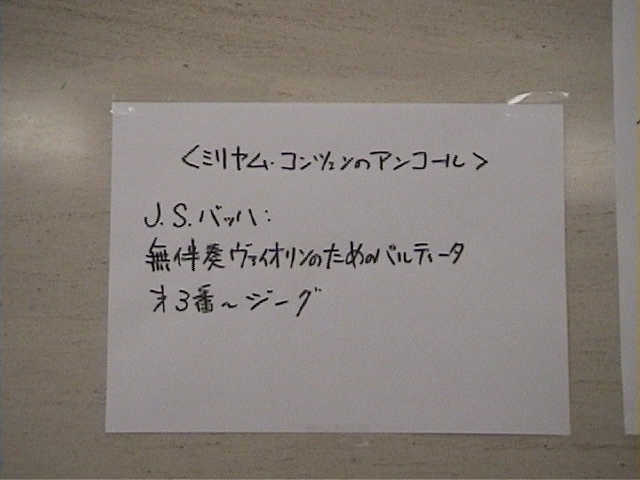 <ミリヤム・コンツェンのアンコール>
J.S.バッハ:
無伴奏ヴァイオリンのためのパルティータ
才3番~ジーグ